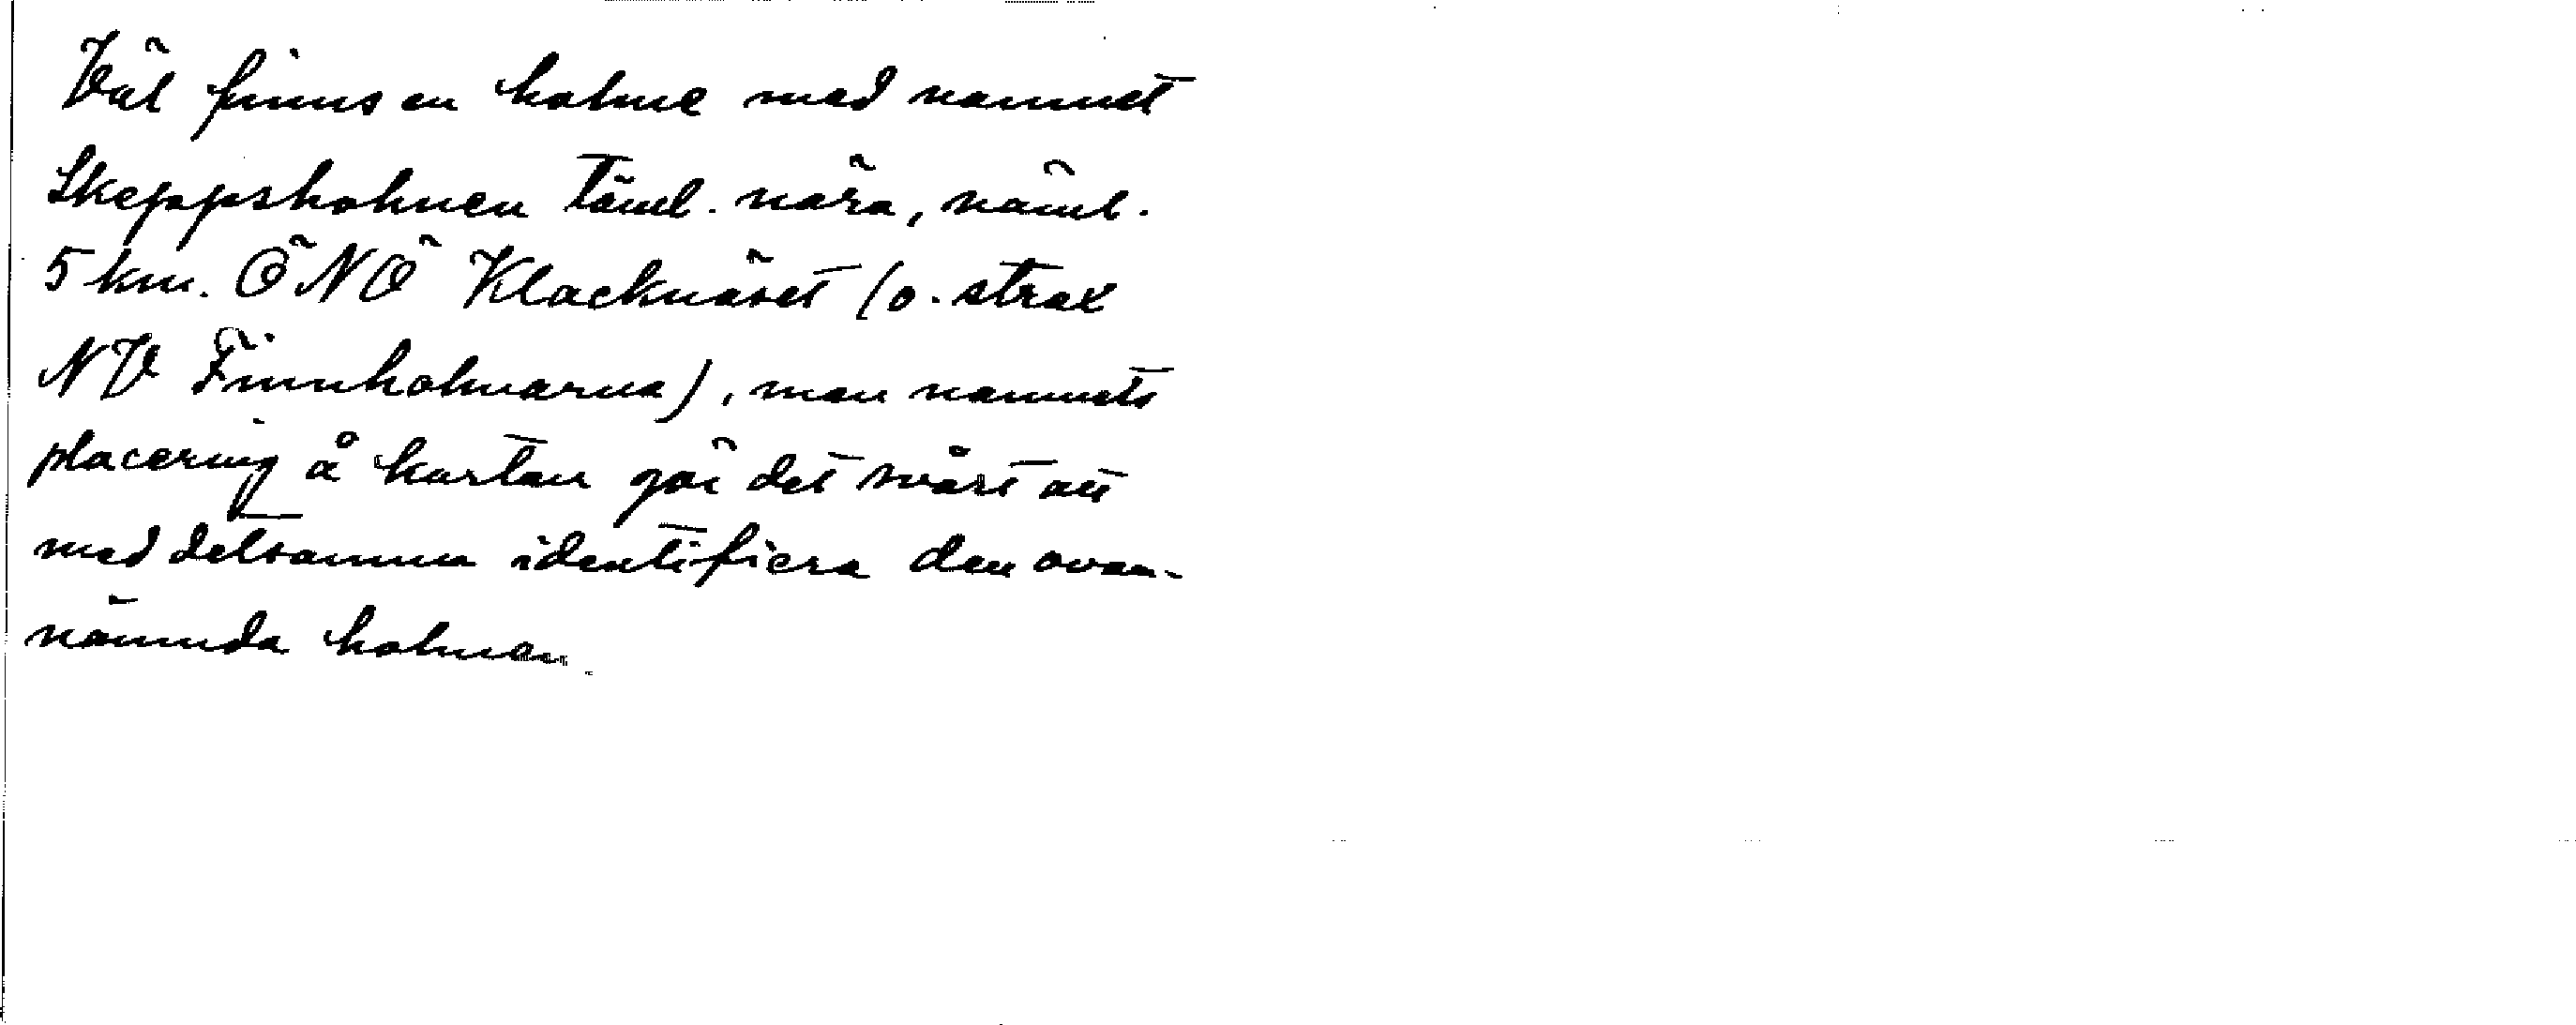 Väl finns en holme med namnet
Skeppsholmen täml. nära, näml.
5 km. ÖNÖ Klacknäset (o. strax
NV Finnholmarna), men namnets
placering å kartan gör det svårt att
med detsamma identifiera den ovan-
nämnda holmen.